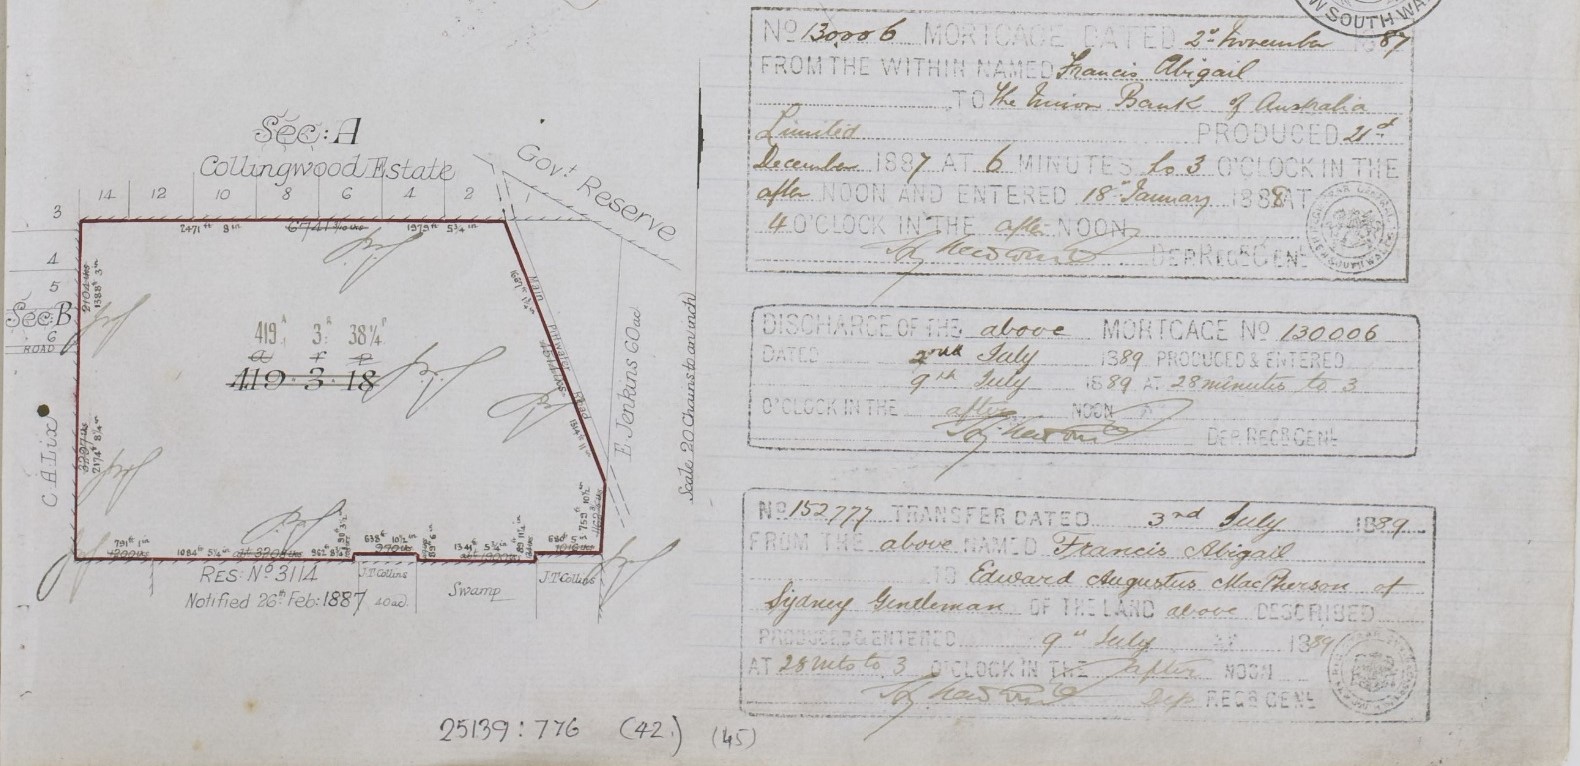 Sec: A
Collingwood Estate
Gov.t Reserve
14 12 10 8 6 4 2 1
3
2471 ft 8 in 1979 ft 5¾ in
4
5
Sec: B
6
ROAD
1388 ft 3 in
419 A 3 R 38¼ P
A R P
419 . 3 . 18
C A Lix
2174 ft 8¼ in
E Jenkins 60 ac
Scale 20 Chains to an inch
791 ft 1 in
1084 ft 5¼ in
638 ft 10½ in
1341 ft 5¾ in
RES: No 3114
Notified 26th Feb: 1887
J.T Collins
40 ac
Swamp
J.T Collins
25139 : 776 (42.) (45)
W SOUTH WA
No 130006 MORTGAGE DATED 2d November 1887
FROM THE WITHIN NAMED Francis Abigail
TO The Union Bank of Australia
Limited PRODUCED 21st
December 1887 AT 6 MINUTES to 3 O'CLOCK IN THE
after NOON AND ENTERED 18th January 1888 AT
4 O'CLOCK IN THE after NOON
DEP REGR GENL
DISCHARGE OF THE above MORTGAGE No 130006
DATED 2nd July 1889 PRODUCED & ENTERED
9th July 1889 AT 28 minutes to 3
O'CLOCK IN THE after NOON
DEP REGR GENL
No 152777 TRANSFER DATED 3rd July 1889
FROM THE above NAMED Francis Abigail
TO Edward Augustus MacPherson of
Sydney Gentleman OF THE LAND above DESCRIBED
PRODUCED & ENTERED 9th July 1889
AT 28 mts to 3 O'CLOCK IN THE after NOON
Dep REGR GENL